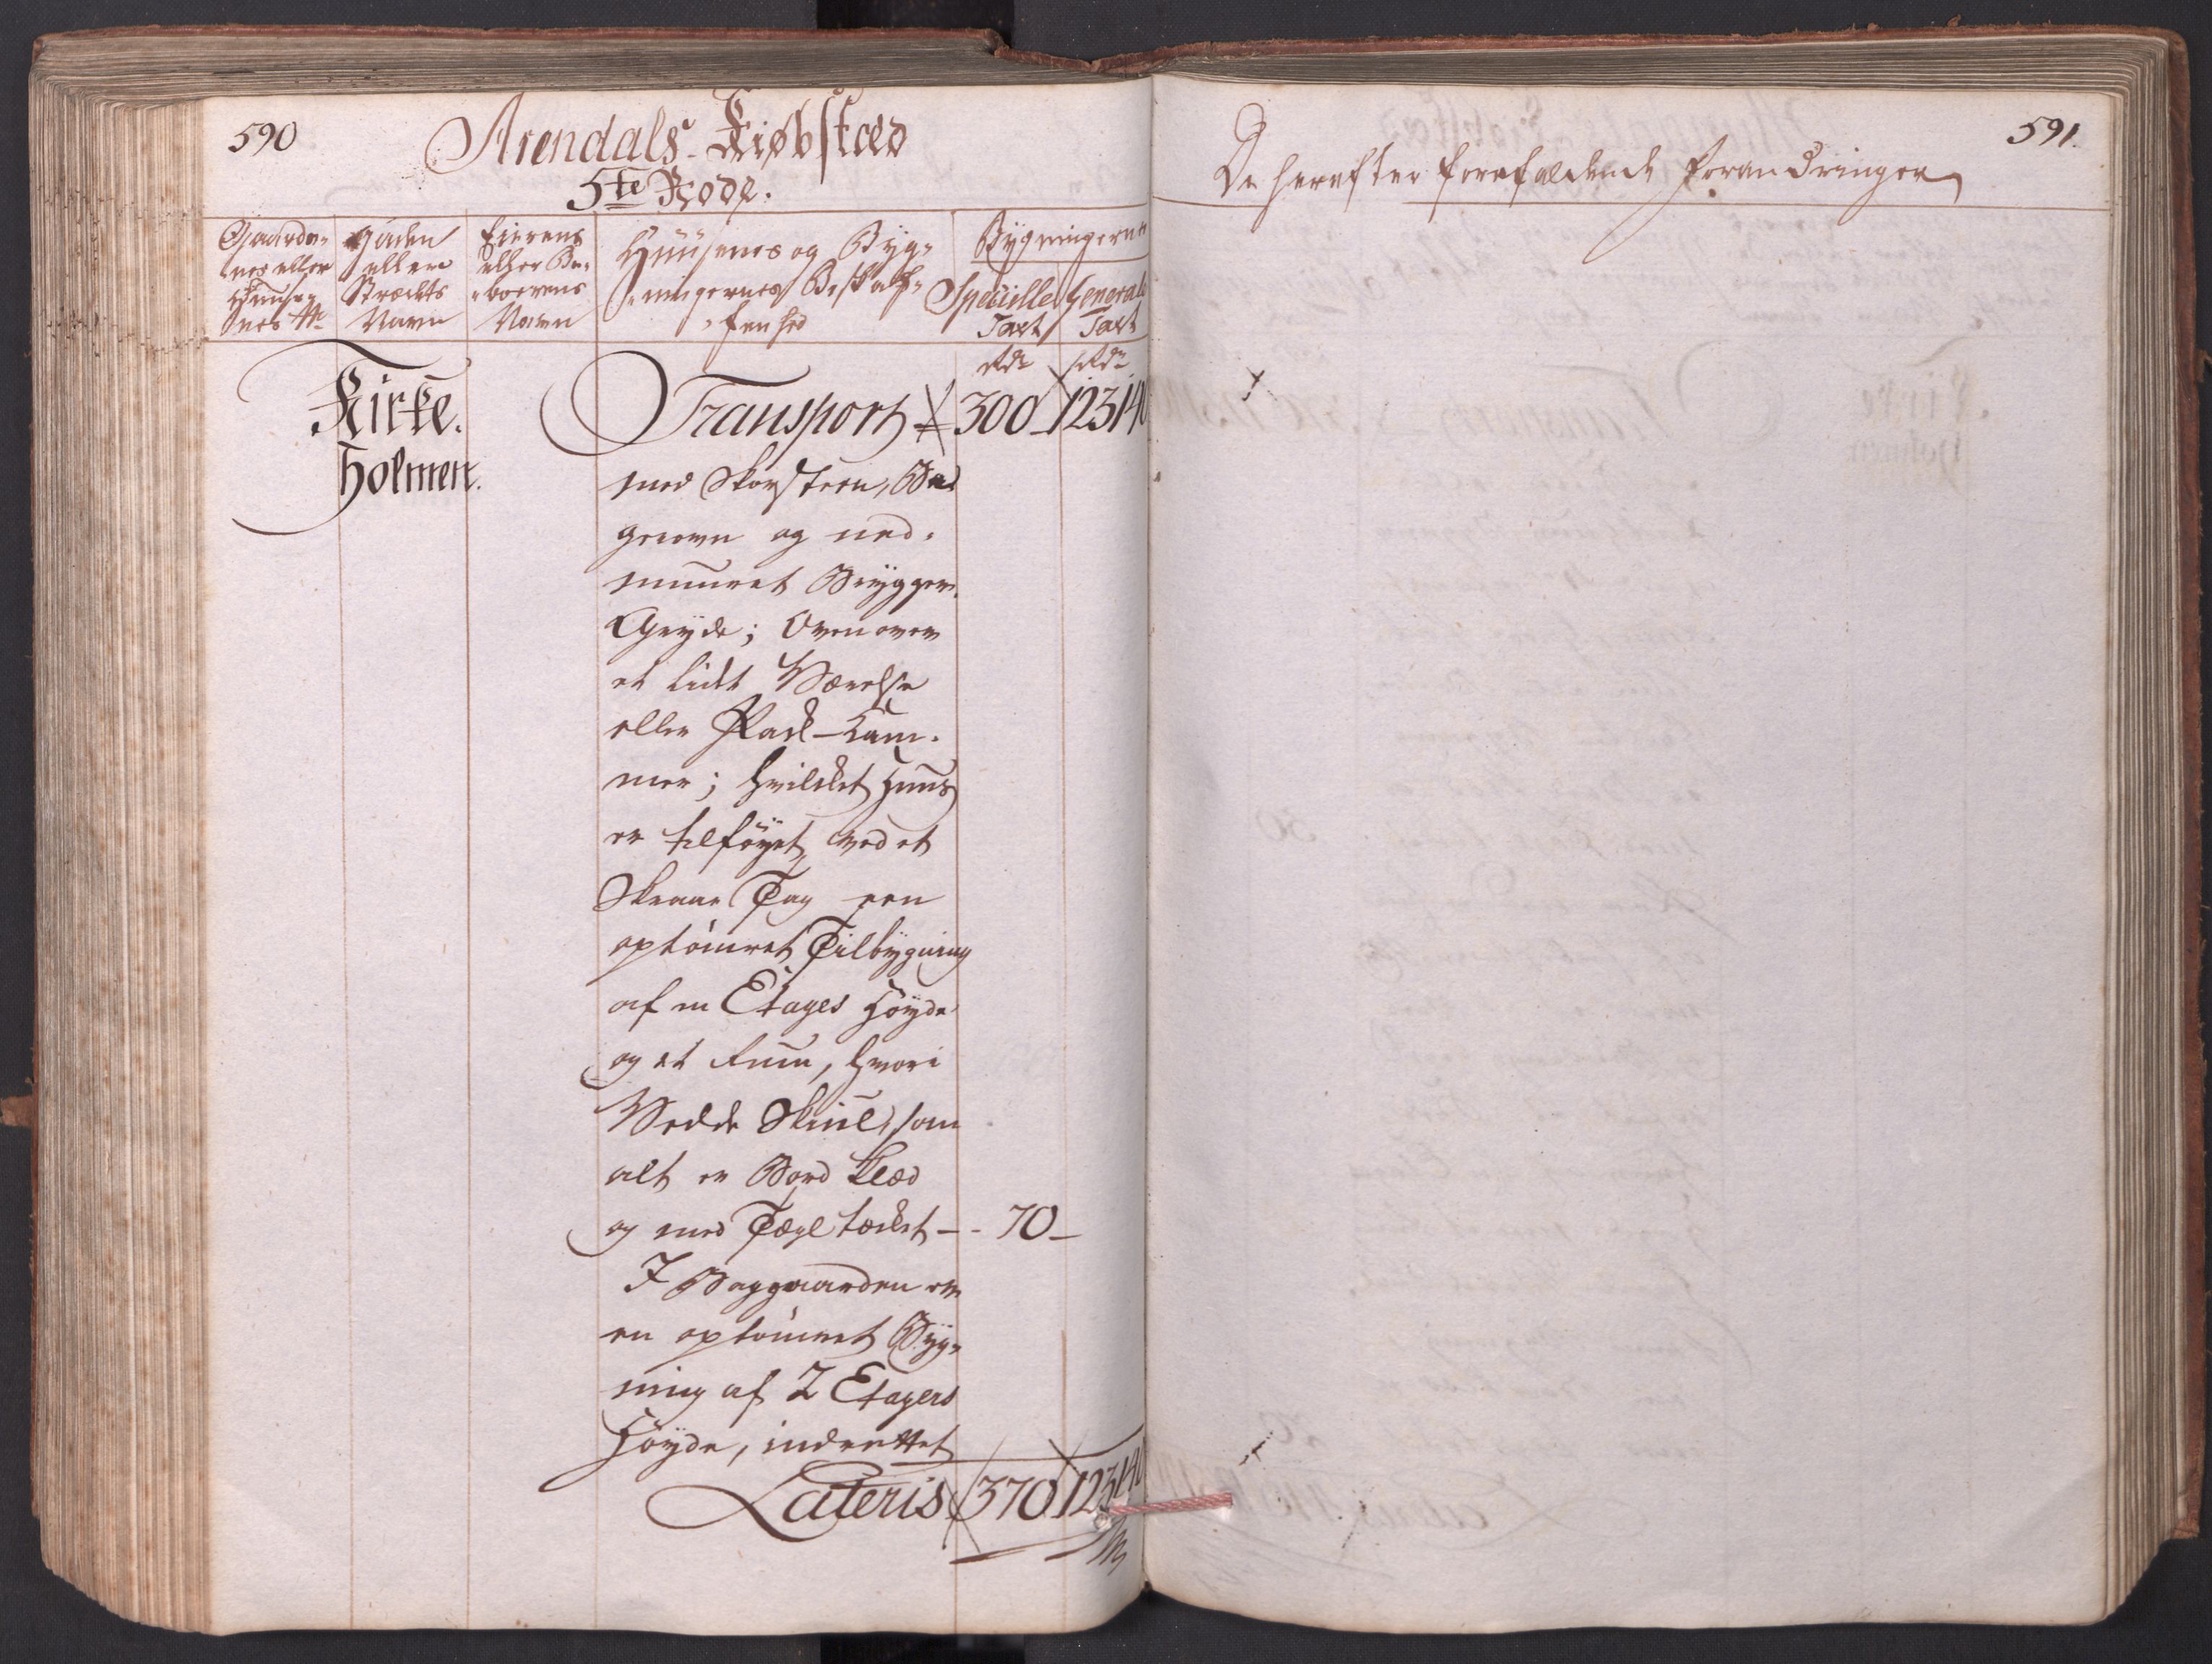 590
Arendals Kiøbstæd
5te Rode.
Gaarde-
nes eller
Huuse-
nes No
Gaden
eller
Strædets
Navn
Eierens
eller Be-
boerens
Navn
Huusenes og Byg-
ningernes Beskaf-
fenhed
Bygningernes
Specielle
Taxt
Generale
Taxt
Rdr
Rdr
Kirke
Holmen.
Transport 300 123140
med Skorsteen, Ba-
gerovn og ned-
muuret Brygger-
Gryde; Ovenover
et lidt Værelse
eller Pack-Kam-
mer; hvilket Huus
er tilføyet ved et
Skraae Tag een
optømret Tilbygning
af en Etages Høyde
og et Rum, hvori
Vedde Skiul, som
alt er Bord klæd
og med Tægl tæcket - - 70 -
I Baggaarden er
en optømret Byg-
ning af 2 Etagers
Høyde, indrettet
Lateris 370 123140
591.
De herefter forefaldende Forandringer